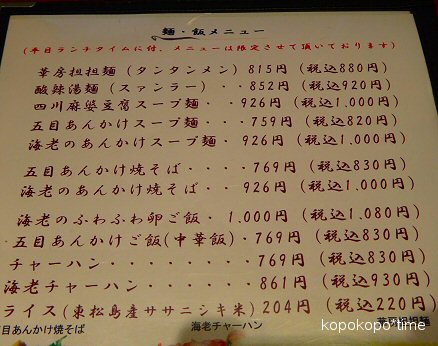 麺・飯メニュー
(平日ランチタイムに付、メニューは限定させて頂いております)
華房担担麺(タンタンメン) 815円(税込880円)
酸辣湯麺(スァンラー)・・852円(税込920円)
四川麻婆豆腐スープ麺・926円(税込1,000円)
五目あんかけスープ麺・759円(税込820円)
海老のあんかけスープ麺・926円(税込1,000円)
五目あんかけ焼そば・・・769円(税込830円)
海老のあんかけ焼そば・・926円(税込1,000円)
海老のふわふわ卵ご飯・1,000円(税込1,080円)
五目あんかけご飯(中華飯)・769円(税込830円)
チャーハン・・・・・・・769円(税込830円)
海老チャーハン・・・・・861円(税込930円)
ライス(東松島産ササニシキ米)204円(税込220円)
目あんかけ焼そば
海老チャーハン
華房担担麺
kopokopo time